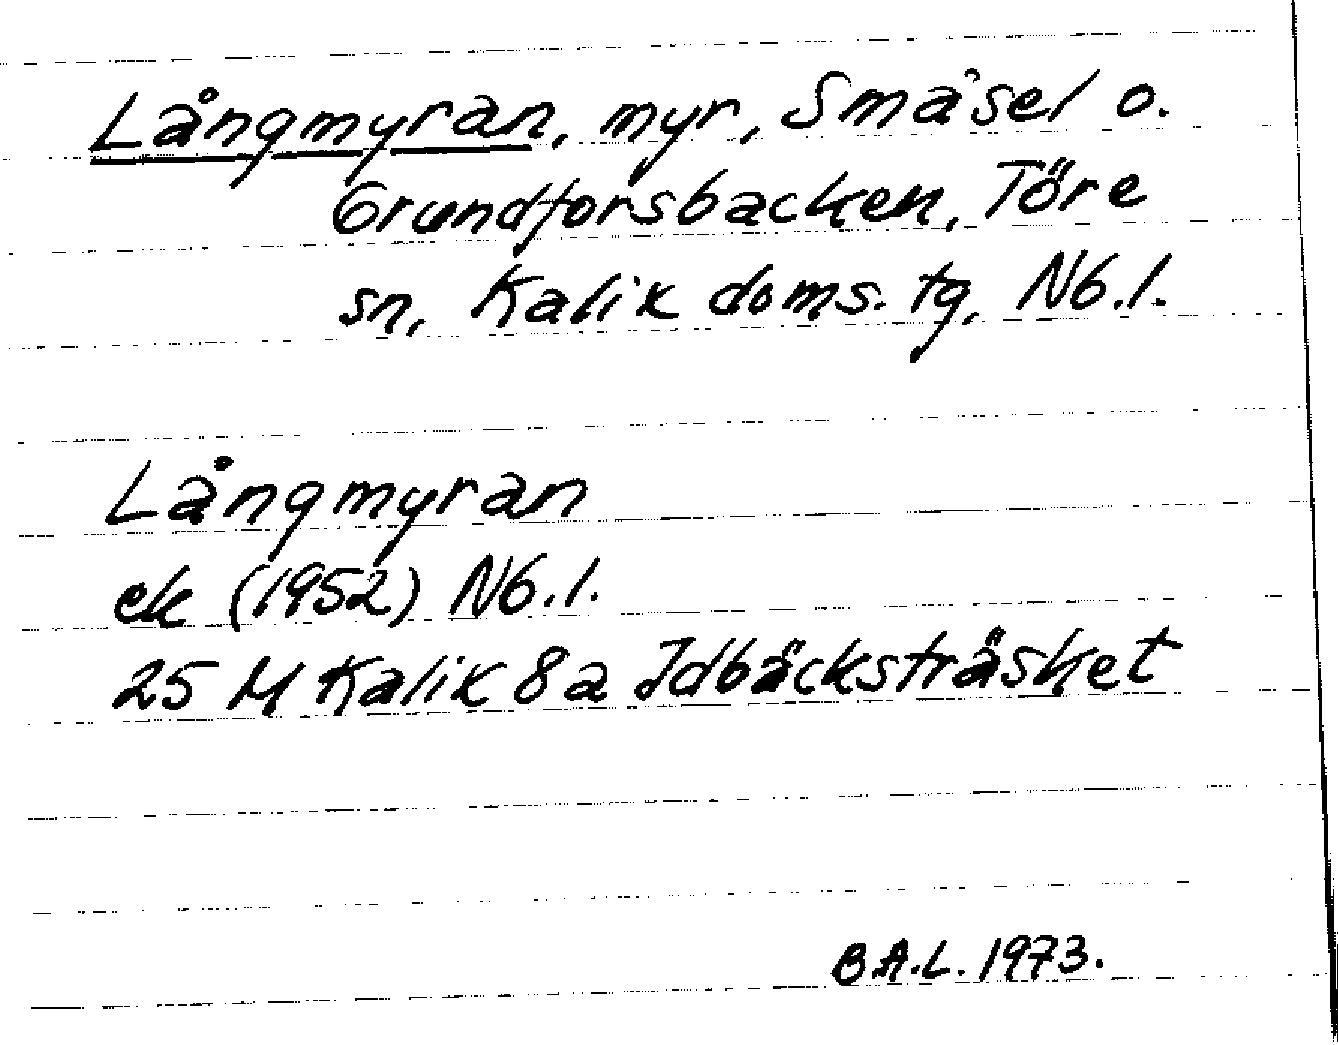 Långmyran, myr, Småsel o.
Grundforsbacken, Töre
sn, Kalix doms. tg, Nb.l.
Långmyran
ek (1952) Nb.l.
25 M Kalix 8a Idbäcksträsket
B.A.L. 1973.